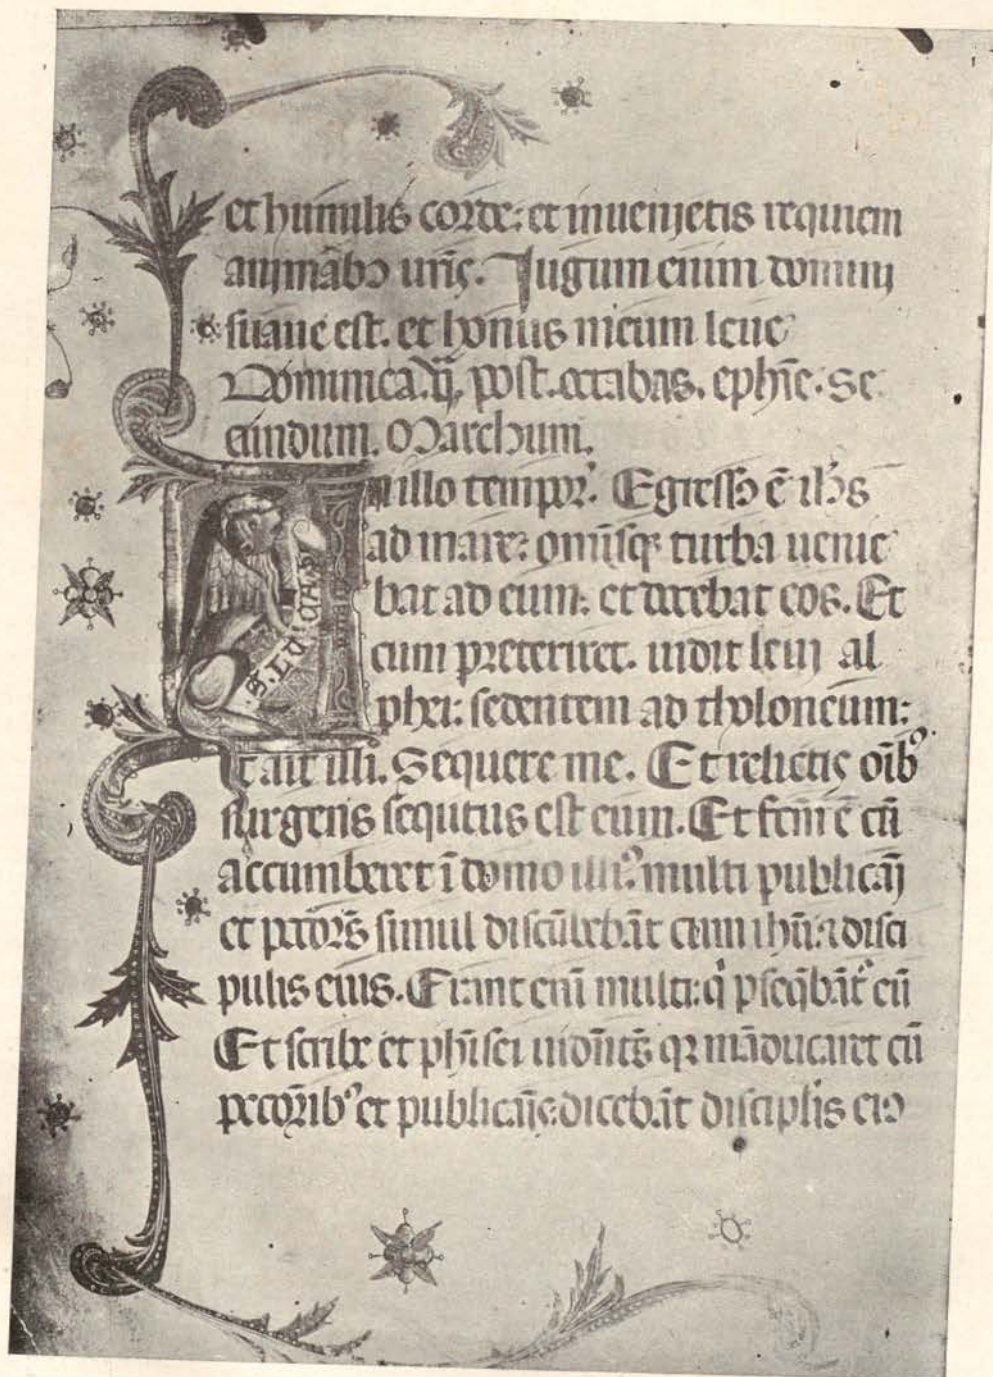 et humilis corde: et inuenietis requiem
animabꝫ uris. Jugum enim domini
suaue est. et honus meum leue
Dominica. ij. post. octabas. ephie. Se
cundum. Marchum.
In illo tempor. Egressꝰ ē ihs
ad mare: omisqꝫ turba uenie
bat ad eum: et docebat eos. Et
cum preteriret. uidit leui al
phei: sedentem ad tholoneum:
S. LUCAS
Et ait illi. Sequere me. Et relictis oibꝰ
surgens sequtus est eum. Et fcm ē cū
accumberet ī domo illiꝰ: multi publicāi
et pccōrs simul discūbebāt cum ihū: ⁊ disci
pulis eius. Erant enī multi: q̄ pseqbāt eū
Et scribe et phisei uidnts qꝛ māducaret cū
peccoribꝰ et publicāis: dicebāt disciplis eiꝰ